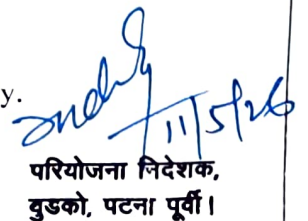 y.
11/5/26
परियोजना निदेशक,
वुडको, पटना पूर्वी।